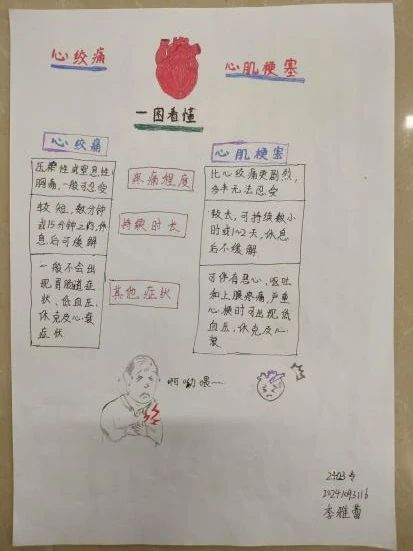 心绞痛
心肌梗塞
一图看懂
心绞痛
心肌梗塞
压榨性或窒息性
胸痛,一般可忍受
疼痛程度
比心绞痛更剧烈,
多半无法忍受
较短,数分钟
或15分钟之内,休
息后可缓解
持续时长
较长,可持续数小
时或1~2天,休息
后不缓解
一般不会出
现胃肠道症
状、低血压、
休克及心衰
症状
其他症状
可伴有恶心,呕吐
和上腹疼痛,严重
心梗时可出现低
血压,休克及心
衰
啊呦喂……
2403专
李雅蕾